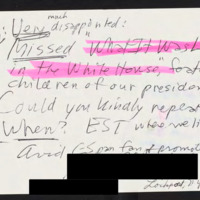 : Very much disappointed:
Missed "What It Was
in the White House," for
children of our presiden
Could you kindly repeat
When? EST where we li
Avid C-Span fan &
Lockport, N.Y.